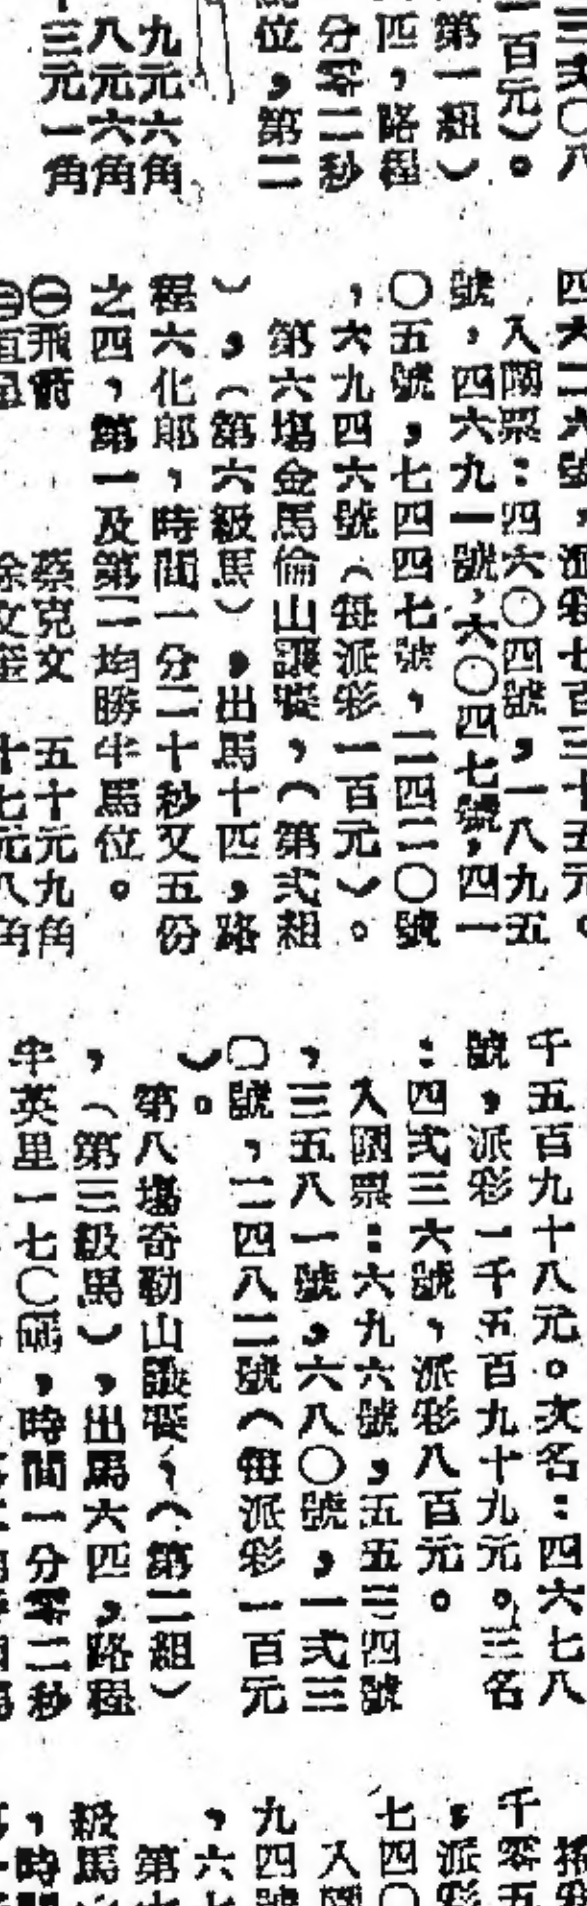 三式〇八
一百元）。
第一組）
匹，路程
分零二秒
馬位，第二
九元六角
八元六角
十三元一角
四六二六號，派彩七百三十五元。
入圍票：四六〇四號，一八九五
號，四六九一號，六〇四七號，四一
〇五號，七四四七號，二四二〇號
，六九四六號（每派彩一百元）。
第六塲金馬倫山讓賽，（第式組
），（第六級馬），出馬十匹，路
程六化郎，時間一分二十秒又五份
之四，第一及第二均勝半馬位。
㊀飛箭　蔡克文　五十元九角
徐文　十七元八角
千五百九十八元。次名：四六七八
號，派彩一千五百九十九元。三名
：四式三六號，派彩八百元。
入圍票：六九六號，五五三四號
，三五八一號，六八〇號，一式三
〇號，二四八二號（每派彩一百元
）。
第八塲奇勒山讓賽，（第二組）
，（第三級馬），出馬六匹，路程
半英里一七〇碼，時間一分零二秒
千零五
，派彩
七四〇
入圍
九四號
，六七
第七
級馬
，時間